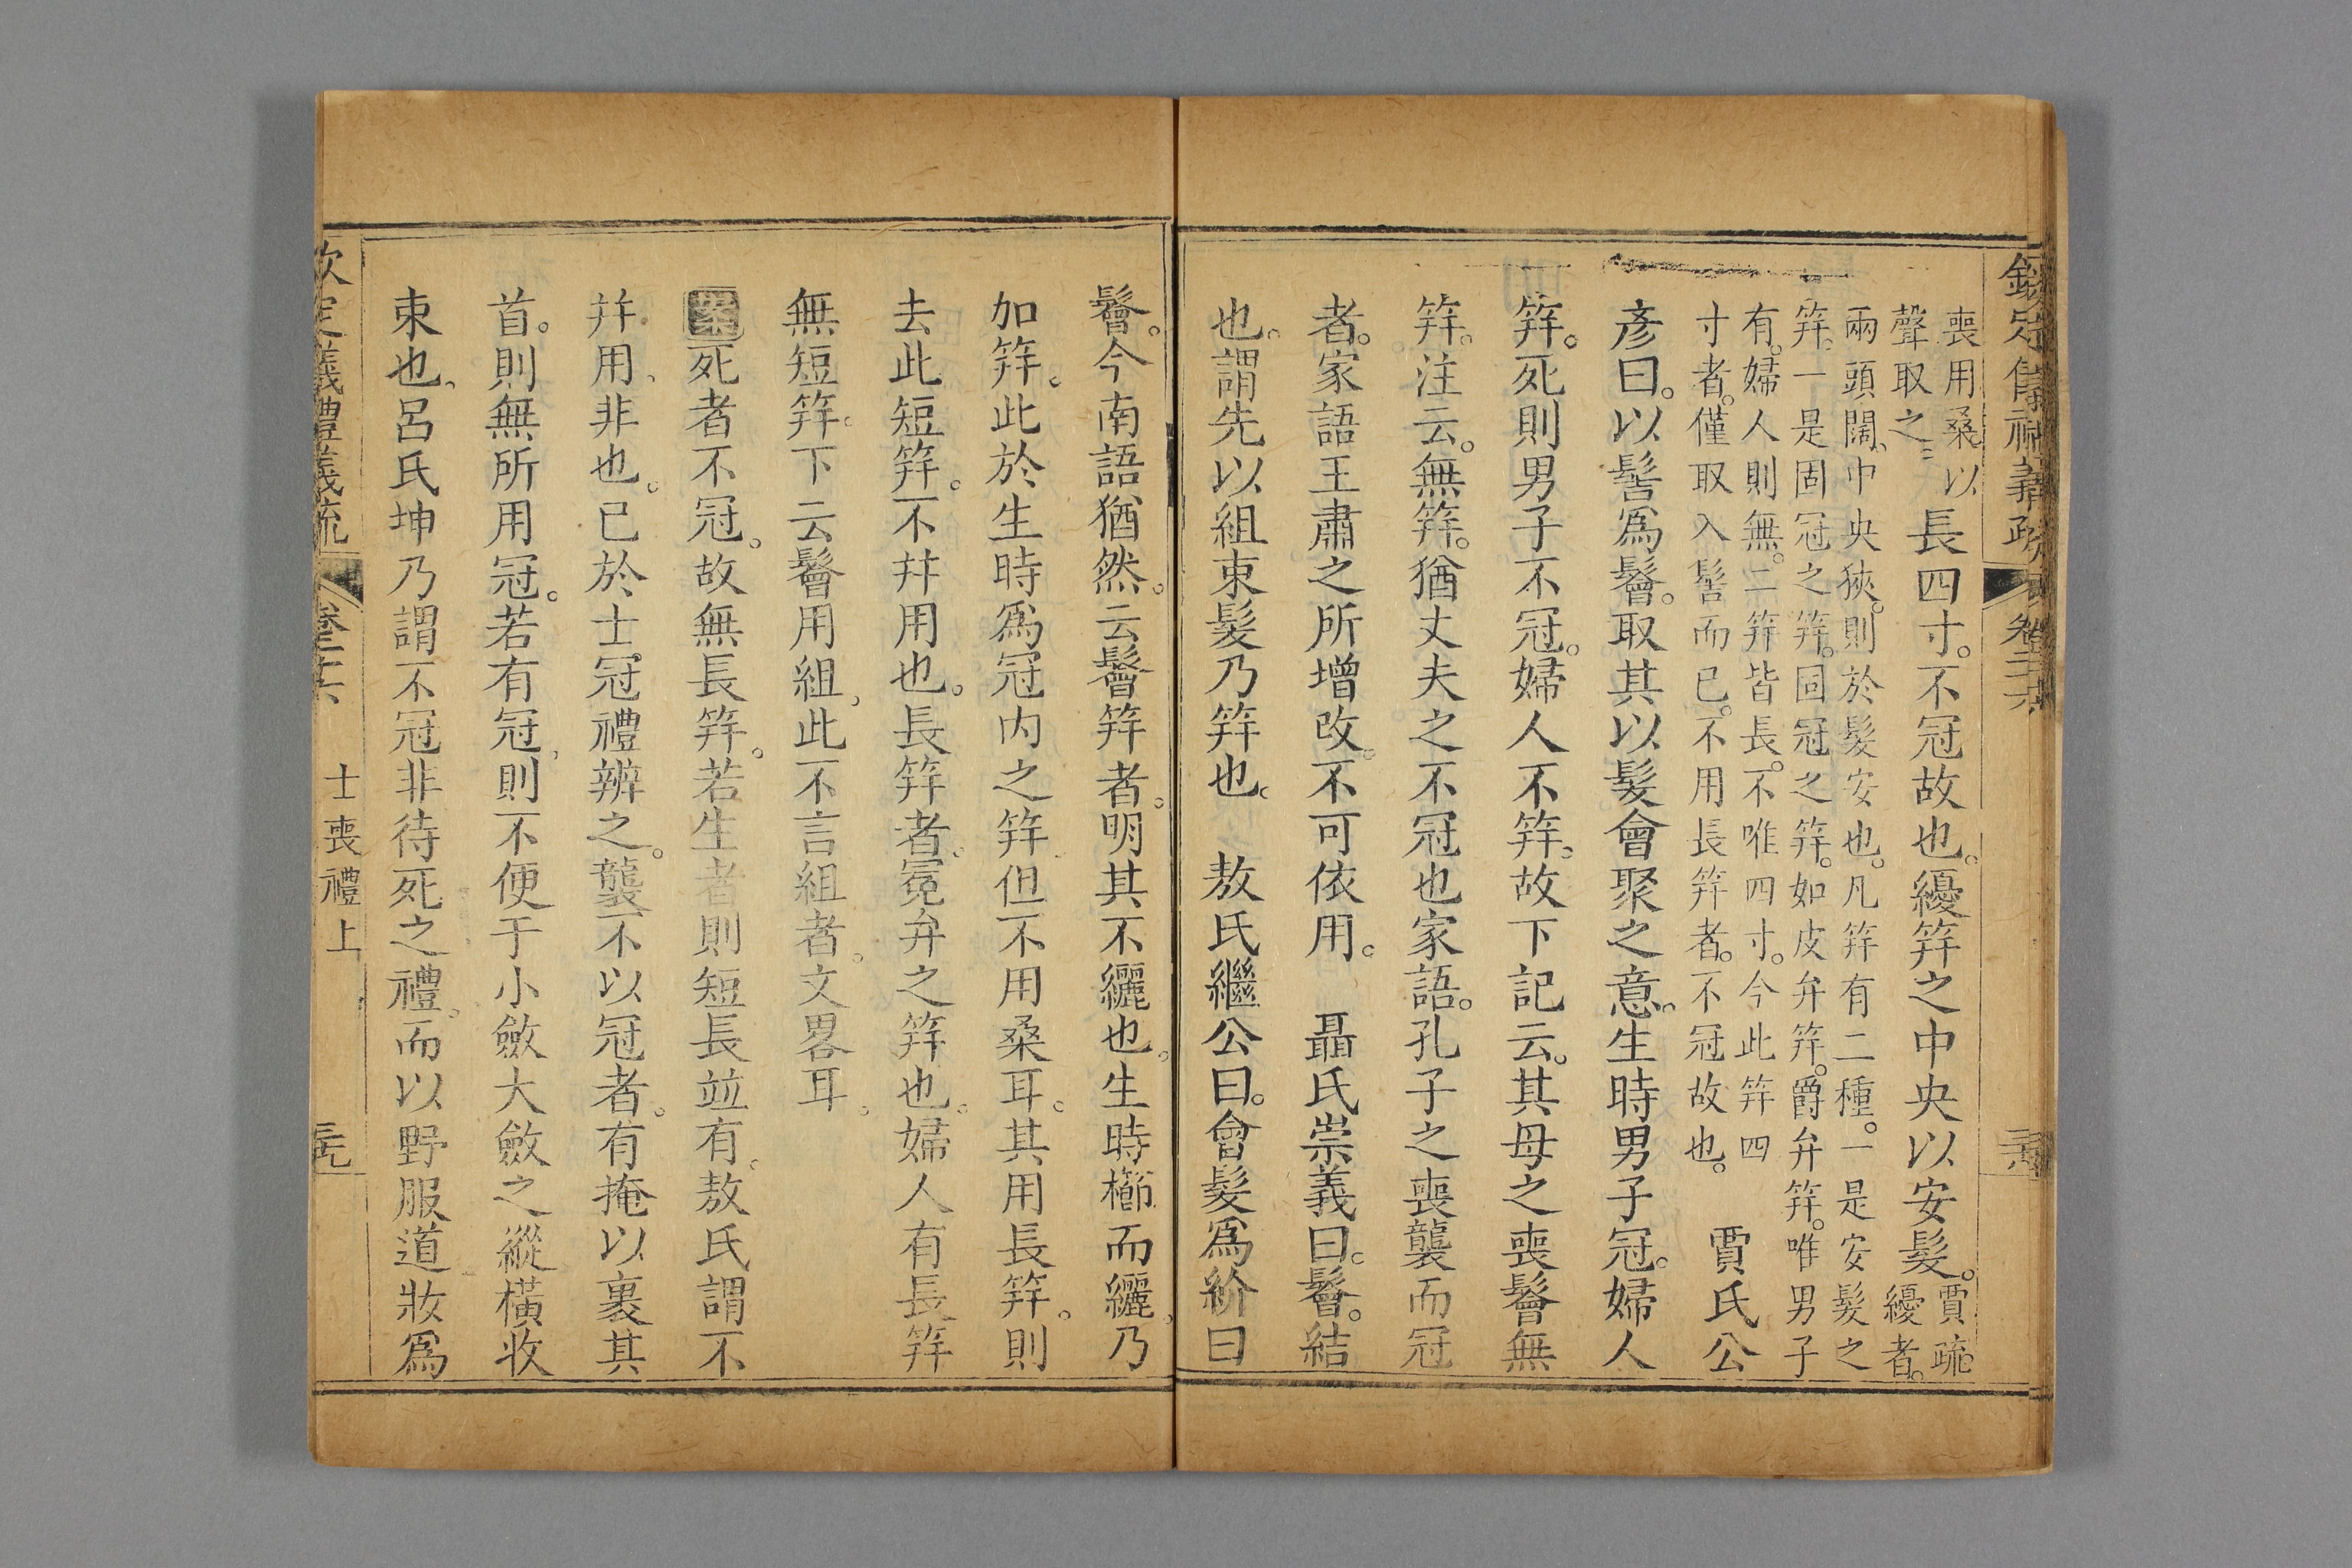 欽定儀禮義疏 卷二十六
喪用桑。以
聲取之
長四寸。不冠故也。纋笄之中央以安髮。
賈疏。
纋者。
兩頭闊、中央狹。則於髮安也。凡笄有二種。一是安髮之
笄。一是固冠之笄。固冠之笄。如皮弁笄。爵弁笄。唯男子
有。婦人則無。二笄皆長。不唯四寸。今此笄四
寸者。僅取入髻而已。不用長笄者。不冠故也。
賈氏公
彥曰。以髻爲鬠。取其以髮會聚之意。生時男子冠。婦人
笄。死則男子不冠。婦人不笄。故下記云。其母之喪鬠無
笄。注云。無笄。猶丈夫之不冠也家語。孔子之喪襲而冠
者。家語王肅之所增改。不可依用。 聶氏崇義曰。鬠。結
也。謂先以組束髮乃笄也。 敖氏繼公曰。會髮爲紒曰
鬠。今南語猶然。云鬠笄者。明其不纚也。生時櫛而纚。乃
加笄。此於生時爲冠内之笄但不用桑耳。其用長笄。則
去此短笄。不幷用也。長笄者。冕弁之笄也。婦人有長笄
無短笄。下云鬠用組、此不言組者。文畧耳。
案死者不冠。故無長笄。若生者則短長竝有。敖氏謂不
幷用、非也。已於士冠禮辨之。襲不以冠者。有掩以裹其
首。則無所用冠。若有冠、則不便于小斂大斂之縱橫收
束也、呂氏坤乃謂不冠非待死之禮。而以野服道妝爲
欽定儀禮義疏 卷二十六 士喪禮上